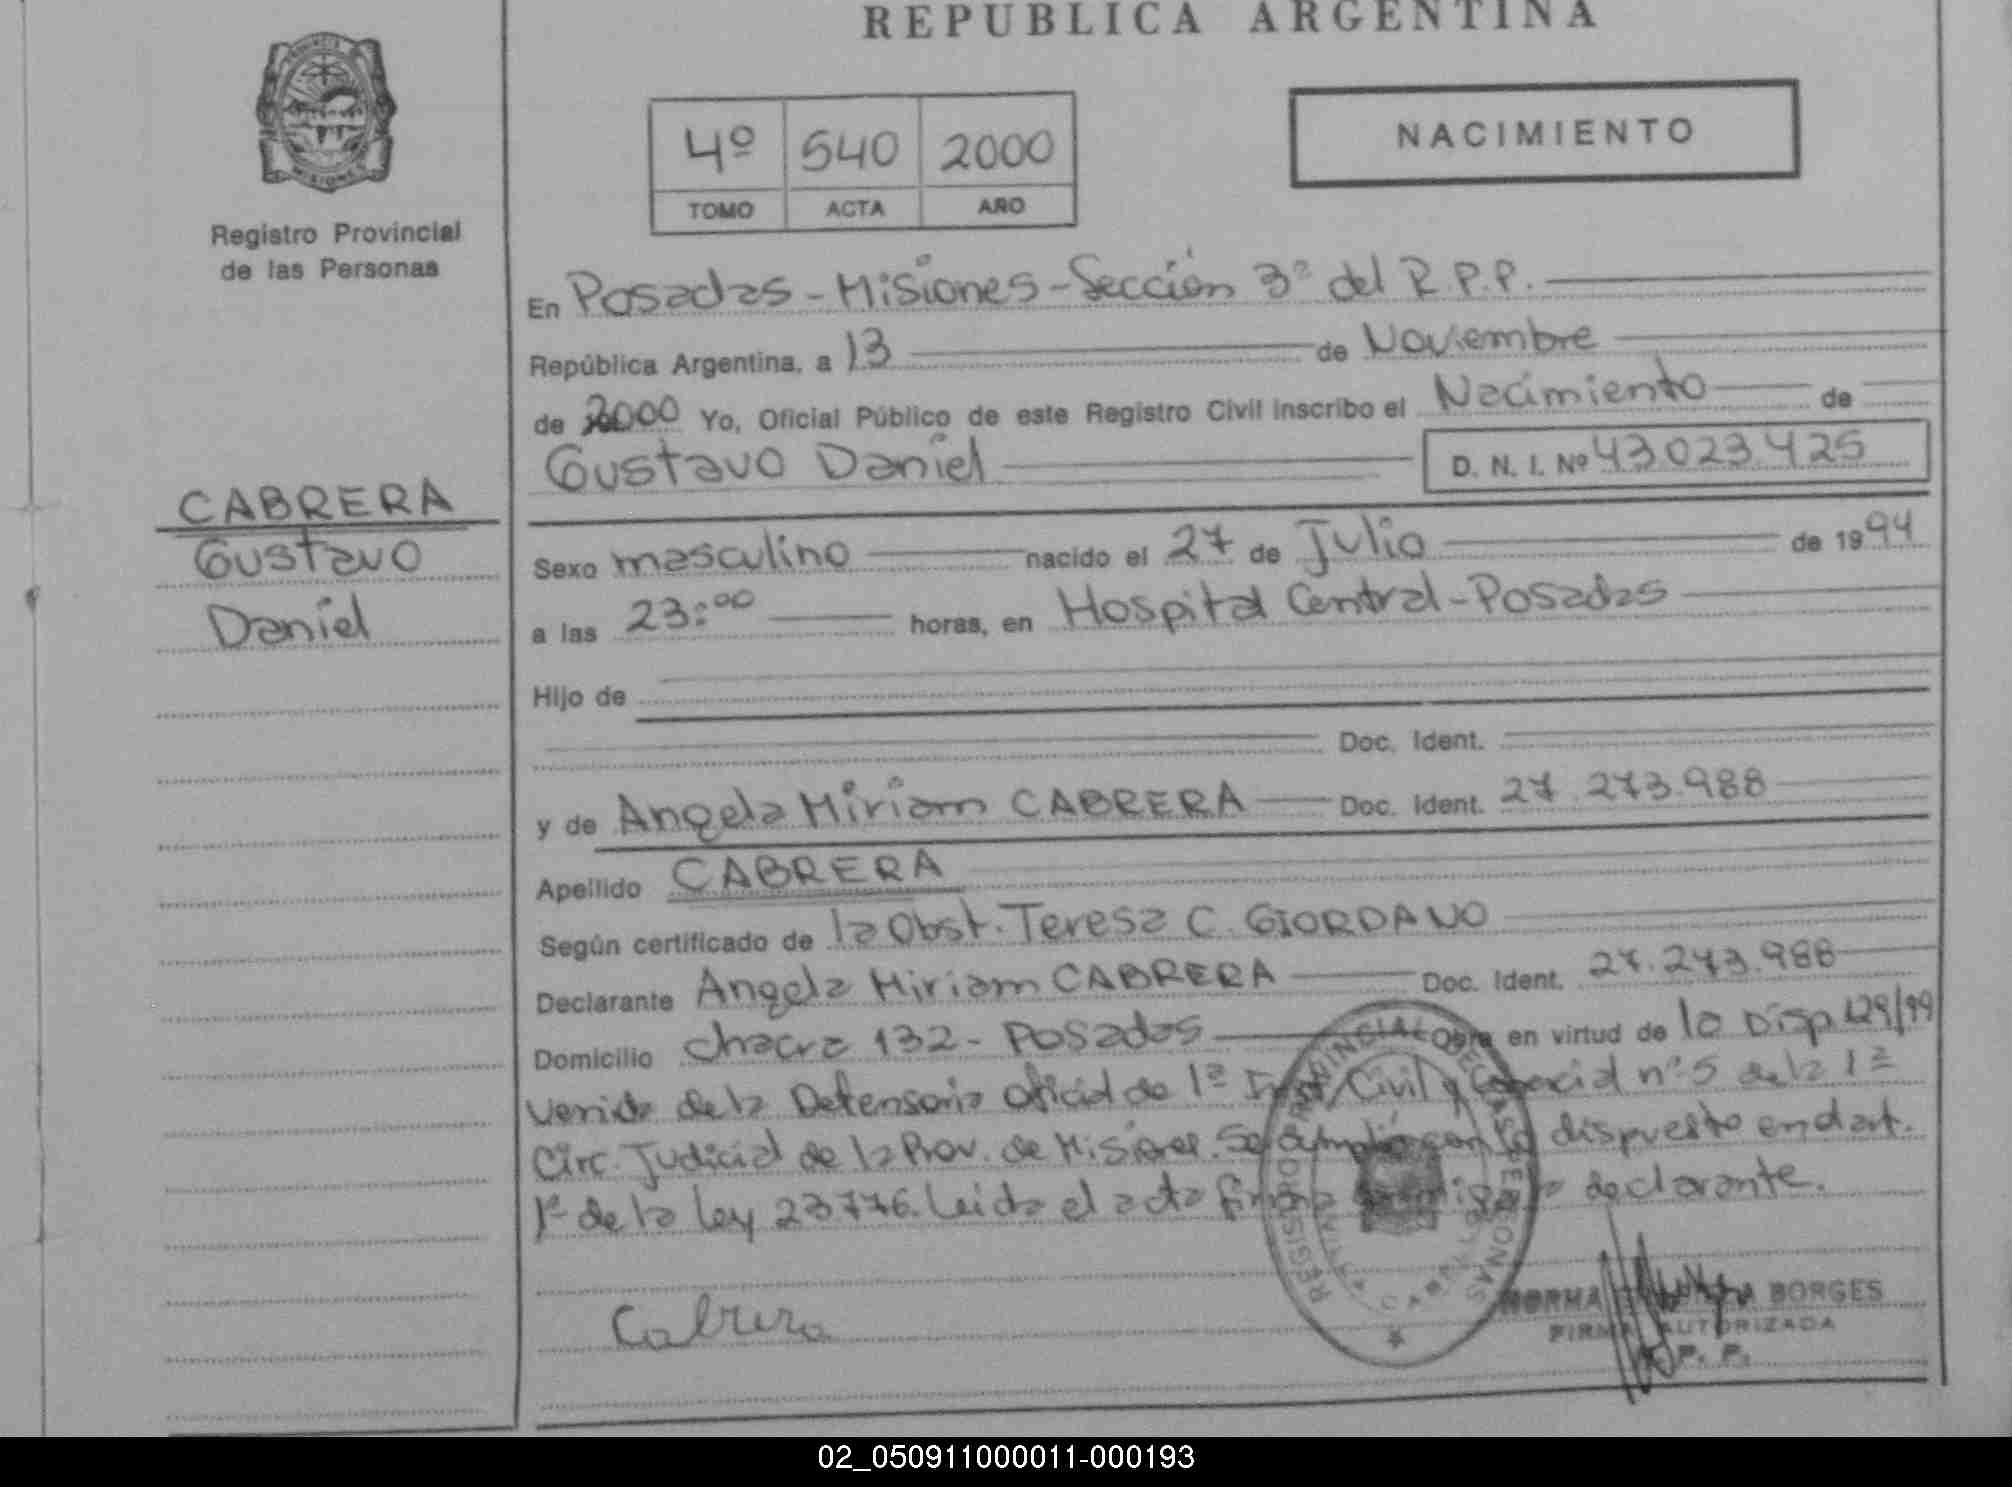 REPUBLICA ARGENTINA
PROVINCIA
MISIONES
Registro Provincial
de las Personas
4º 540 2000
TOMO ACTA AÑO
NACIMIENTO
En Posadas - Misiones - Sección 3ª del R.P.P.
República Argentina, a 13 de Noviembre
de 2000 Yo, Oficial Público de este Registro Civil inscribo el Nacimiento de
Gustavo Daniel D. N. I. Nº 43.023.425
CABRERA
Gustavo
Daniel
Sexo masculino nacido el 27 de Julio de 1994
a las 23:00 horas, en Hospital Central - Posadas
Hijo de
Doc. Ident.
y de Angela Miriam CABRERA Doc. Ident. 27.273.988
Apellido CABRERA
Según certificado de la Obst. Teresa C. GIORDANO
Declarante Angela Miriam CABRERA Doc. Ident. 27.273.988
Domicilio chacra 132 - Posadas Obra en virtud de la Disp 129/99
venida de la Defensoria oficial de 1ª Inst/Civil y Comercial nº 5 de la 1ª
Circ. Judicial de la Prov. de Misiones. Se cumplió con lo dispuesto en el art.
1º de la ley 23.776. Leida el acta firma conmigo la declarante.
Cabrera
REGISTRO PROVINCIAL DE LAS PERSONAS
NORMA BORGES
FIRMA AUTORIZADA
R. P. P.
02_050911000011-000193